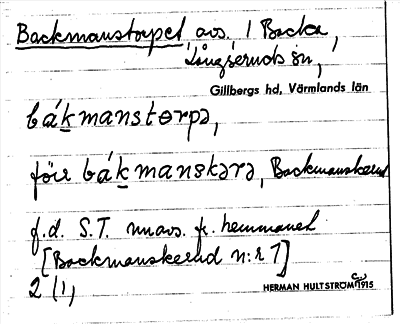 Backmanstorpet avs. 1 Backa,
Långseruds sn,
Gillbergs hd, Värmlands län
bákmanstɵrpə,
förr bákmanskərə, Backmanskerud
f.d. S.T. nu avs. fr. hemmanet
[Backmanskerud n:r 1]
2 (1,
HERMAN HULTSTRÖM 1915